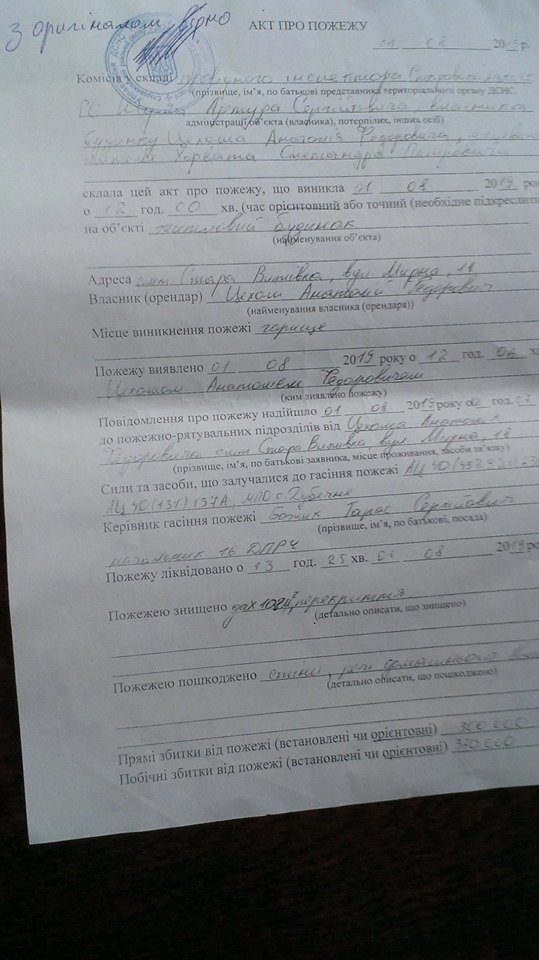 З оригіналом вірно
АКТ ПРО ПОЖЕЖУ
01 08 2019 р.
Комісія у складі провідного інспектора
(прізвище, ім'я, по батькові представника територіального органу ДСНС,
РС Артура Сергійовича, власника
адмістрації об'єкта (власника), потерпілих, інших осіб)
будинку Цехоша Анатолія Федоровича,
Олександра Петровича
склала цей акт про пожежу, що виникла 01 08 2019 року
о 12 год. 00 хв. (час орієнтовний або точний (необхідне підкреслити
на об'єкті житловий будинок
(найменування об'єкта)
Адреса смт Стара Вижівка, вул Мирна, 18
Власник (орендар) Цехош Анатолій Федорович
(найменування власника (орендаря))
Місце виникнення пожежі горище
Пожежу виявлено 01 08 2019 року о 12 год. 02 хв
Цехошом Анатолієм Федоровичем
(ким виявлено пожежу)
Повідомлення про пожежу надійшло 01 08 2019 року
до пожежно-рятувальних підрозділів від Цехоша Анатолія
Федоровича смт Стара Вижівка вул Мирна, 18
(прізвище, ім'я, по батькові заявника, місце проживання, засоби зв'язку)
Сили та засоби, що залучалися до гасіння пожежі АЦ 40
АЦ 40 (131) 137А, МПО с Дубечне
Керівник гасіння пожежі Тарас Сергійович
(прізвище, ім'я, по батькові, посада)
начальник 16 ДПРЧ
Пожежу ліквідовано о 13 год. 25 хв. 01 08 2019 р
Пожежею знищено дах перекриття
(детально описати, що знищено)
Пожежею пошкоджено стіни, речі домашнього
(детально описати, що пошкоджено)
Прямі збитки від пожежі (встановлені чи орієнтовні) 300 000
Побічні збитки від пожежі (встановлені чи орієнтовні)